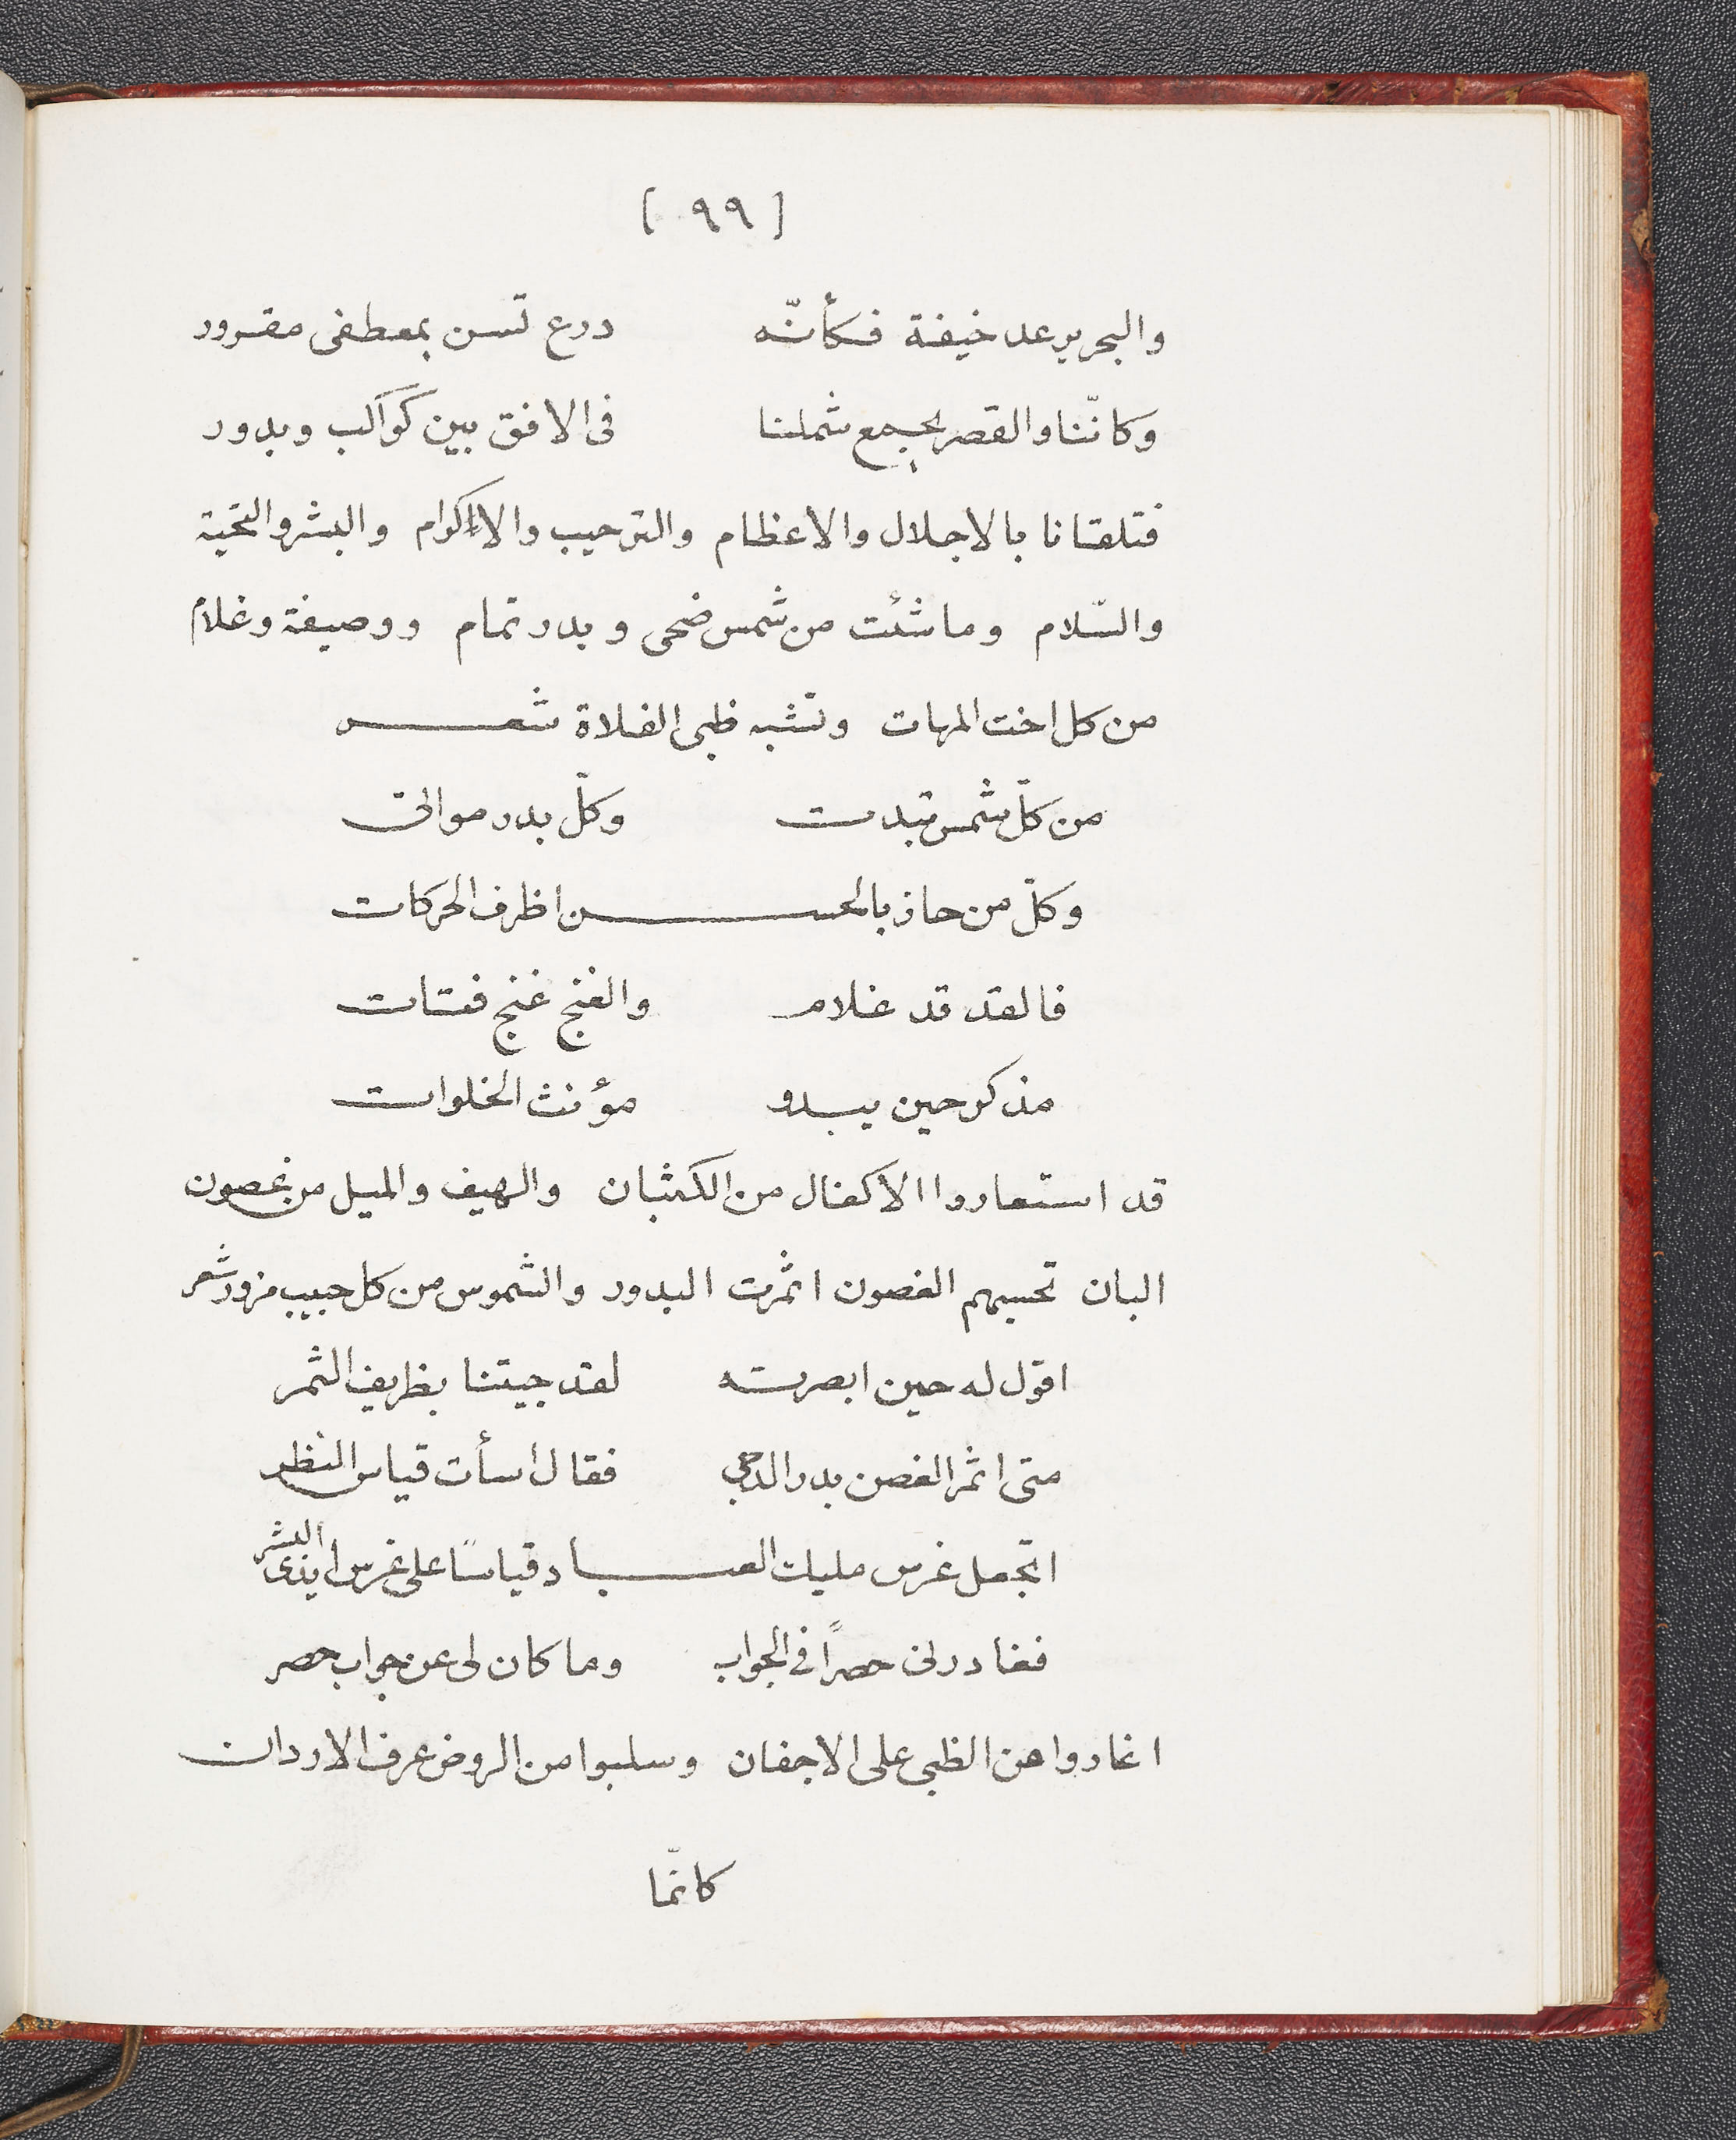 [ ٩٩ ]
والبحر يرعد خيفة فكأنّه درع تسن بمعطفى مقرور
وكانّنا والقصر يجمع شملنا فى الافق بين كواكب وبدور
فتلقانا بالاجلال والاعظام والترحيب والاكرام والبشر والتحية
والسّلام وما شئت من شمس ضحى وبدر تمام ووصيفة وغلام
من كل اخت المهات وتشبه ظبى الفلاة شعر
من كلّ شمس تبدت وكلّ بدر موالى
وكلّ من حاز بالحسن اظرف الحركات
فالقد قد غلام والغنج غنج فتات
مذكر حين يبدو مؤنث الخلوات
قد استعاروا الاكفال من الكثبان والهيف والميل من غصون
البان تحسبهم الغصون اثمرت البدور والشموس من كل حبيب مزور شعر
اقول له حين ابصرته لقد جيتنا بظريف الثمر
متى اثمر الغصن بدر الدجى فقال اسأت قياس النظر
اتجعل غرس مليك العباد قياسًا على غرس ايدى البشر
فغادرنى حصرًا فى الجواب وما كان لى عن جواب حصر
اغاروا عن الظبى على الاجفان وسلبوا من الروض عرف الاردان
كانّما